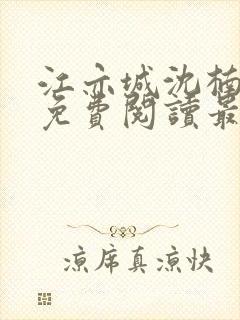 江亦城沈楠
免費閱讀最
涼席真涼快